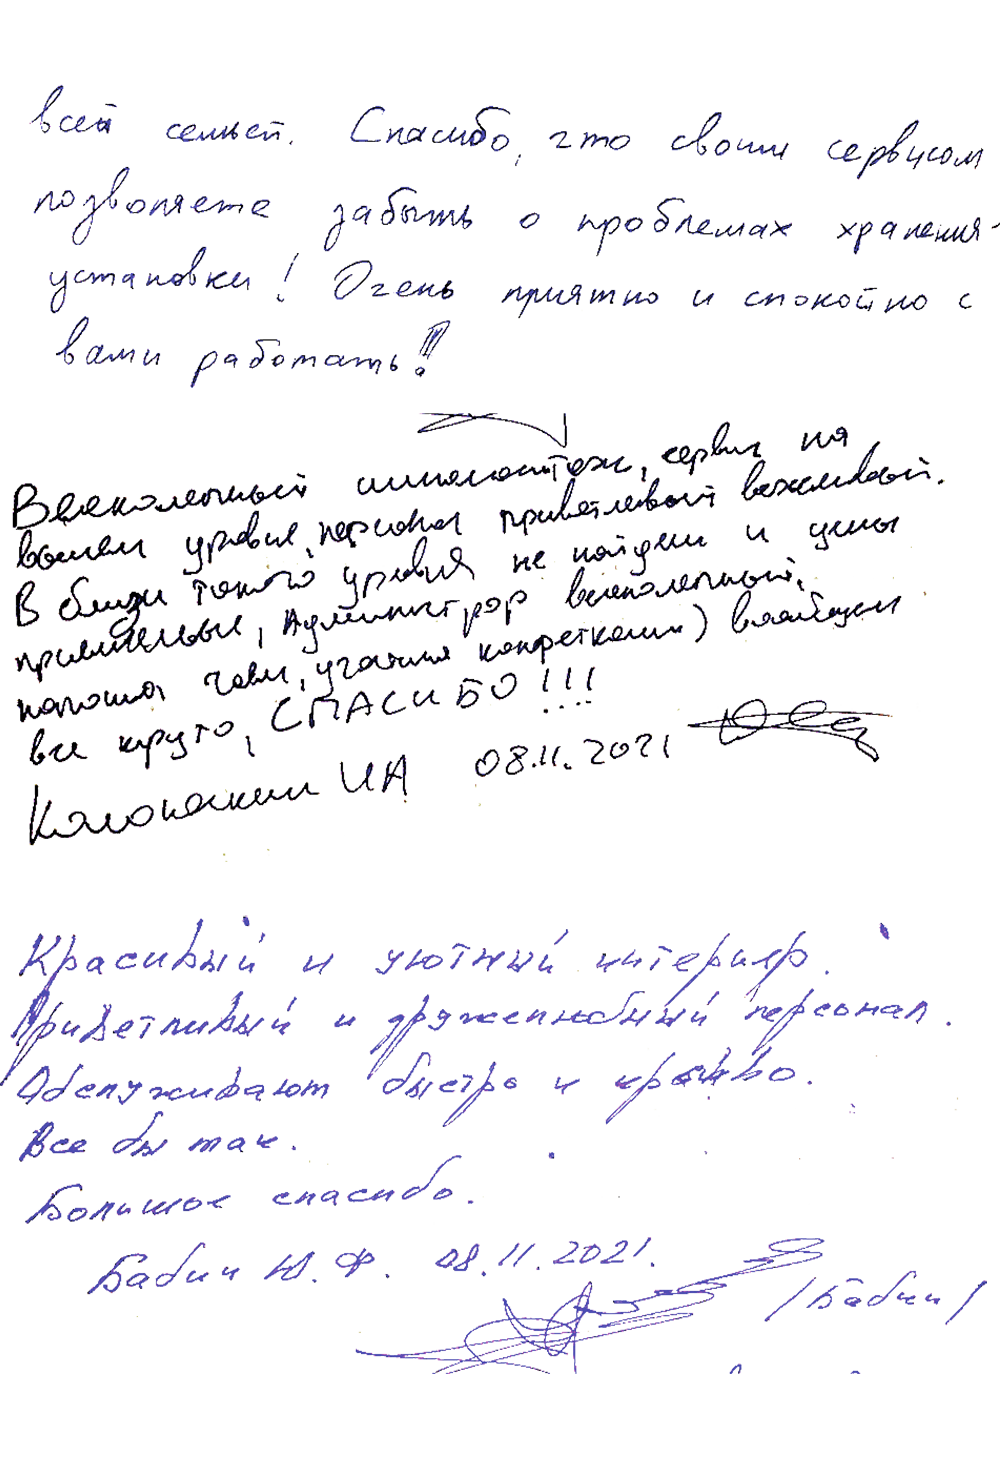 всей семьей. Спасибо, что своим сервисом
позволяете забыть о проблемах хранения-
установки! Очень приятно и спокойно с
вами работать!
Великолепный шиномонтаж, сервис на
высшем уровне, персонал приветливый вежливый.
В близи такого уровня не найдеш и цены
приемлемые, Администратор великолепный,
напоила чаем, угостила конфетками) вообщем
все круто, СПАСИБО!!!
ИА 08.11.2021
Красивый и уютный интерьер.
Приветливый и дружелюбный персонал.
Обслуживают быстро и красиво.
Все бы так.
Большое спасибо.
Бабин Ю. Ф. 08.11.2021.
/Бабин/